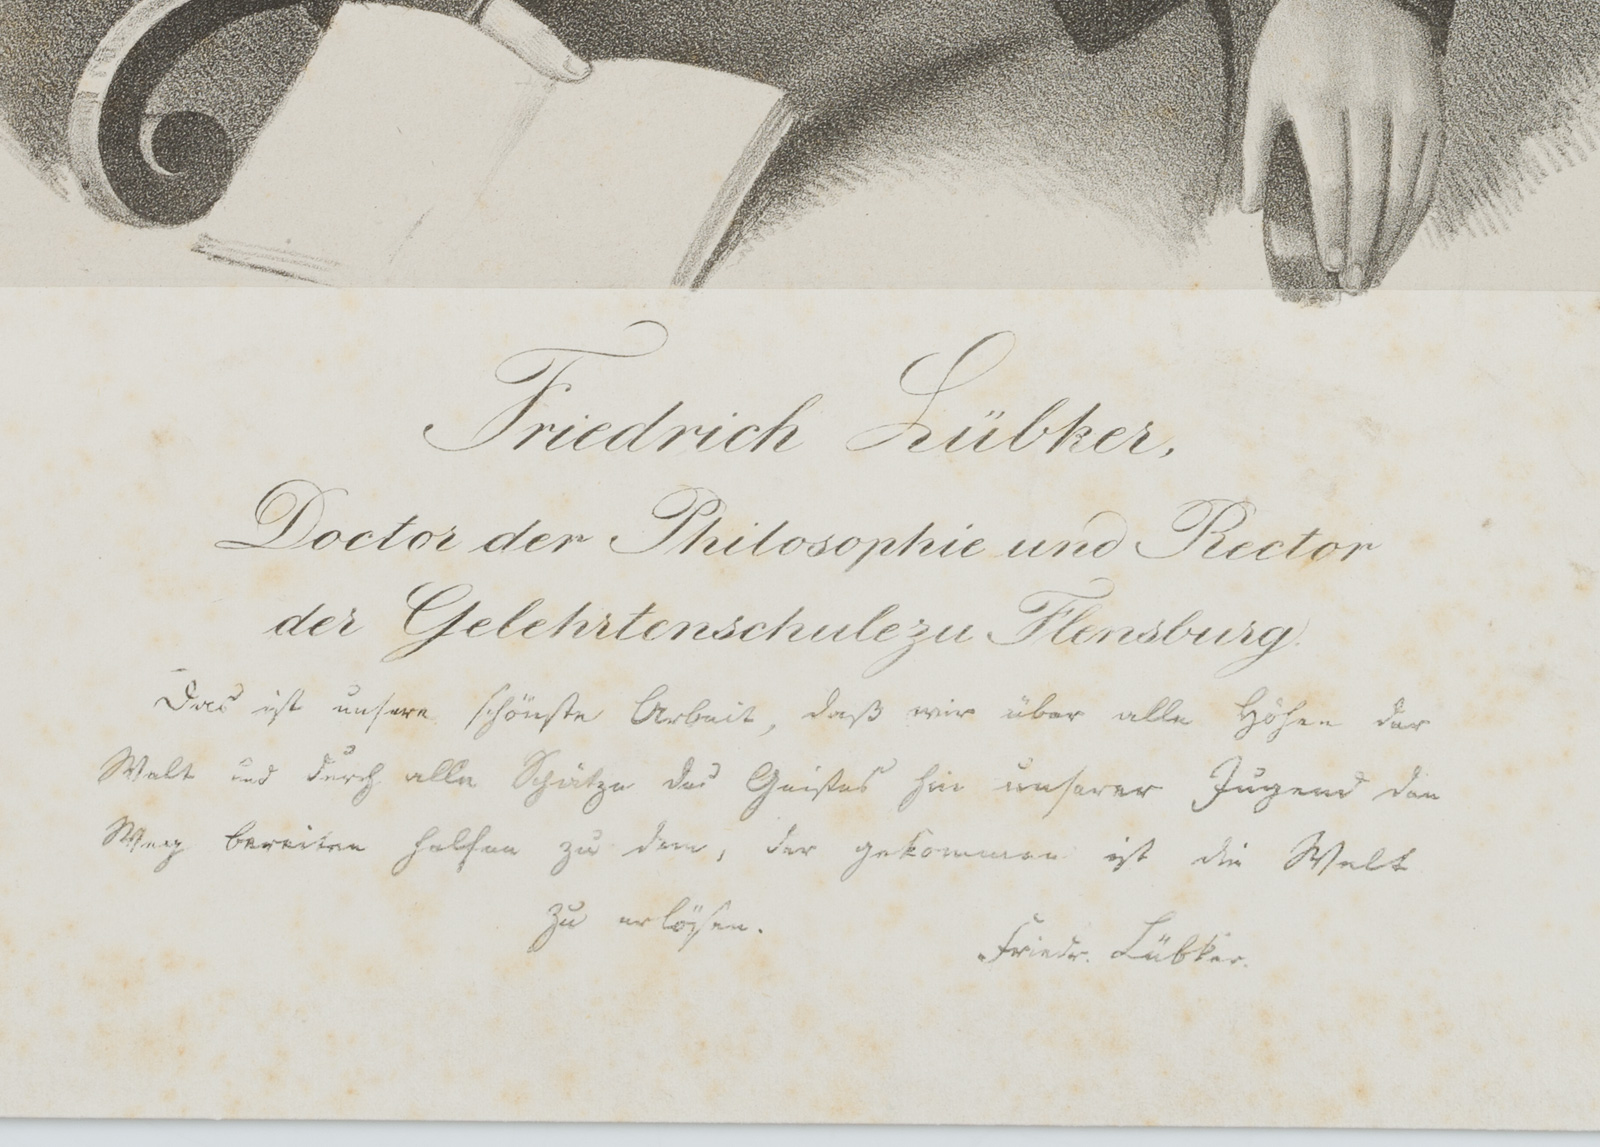 Friedrich Lübker,
Doctor der Philosophie und Rector
der Gelehrtenschule zu Flensburg.
Das ist unsere schönste Arbeit, daß wir über alle Höhen der
Welt und durch alle Schätze des Geistes hin unserer Jugend den
Weg bereiten helfen zu dem, der gekommen ist die Welt
zu erlösen.
Friedr. Lübker.